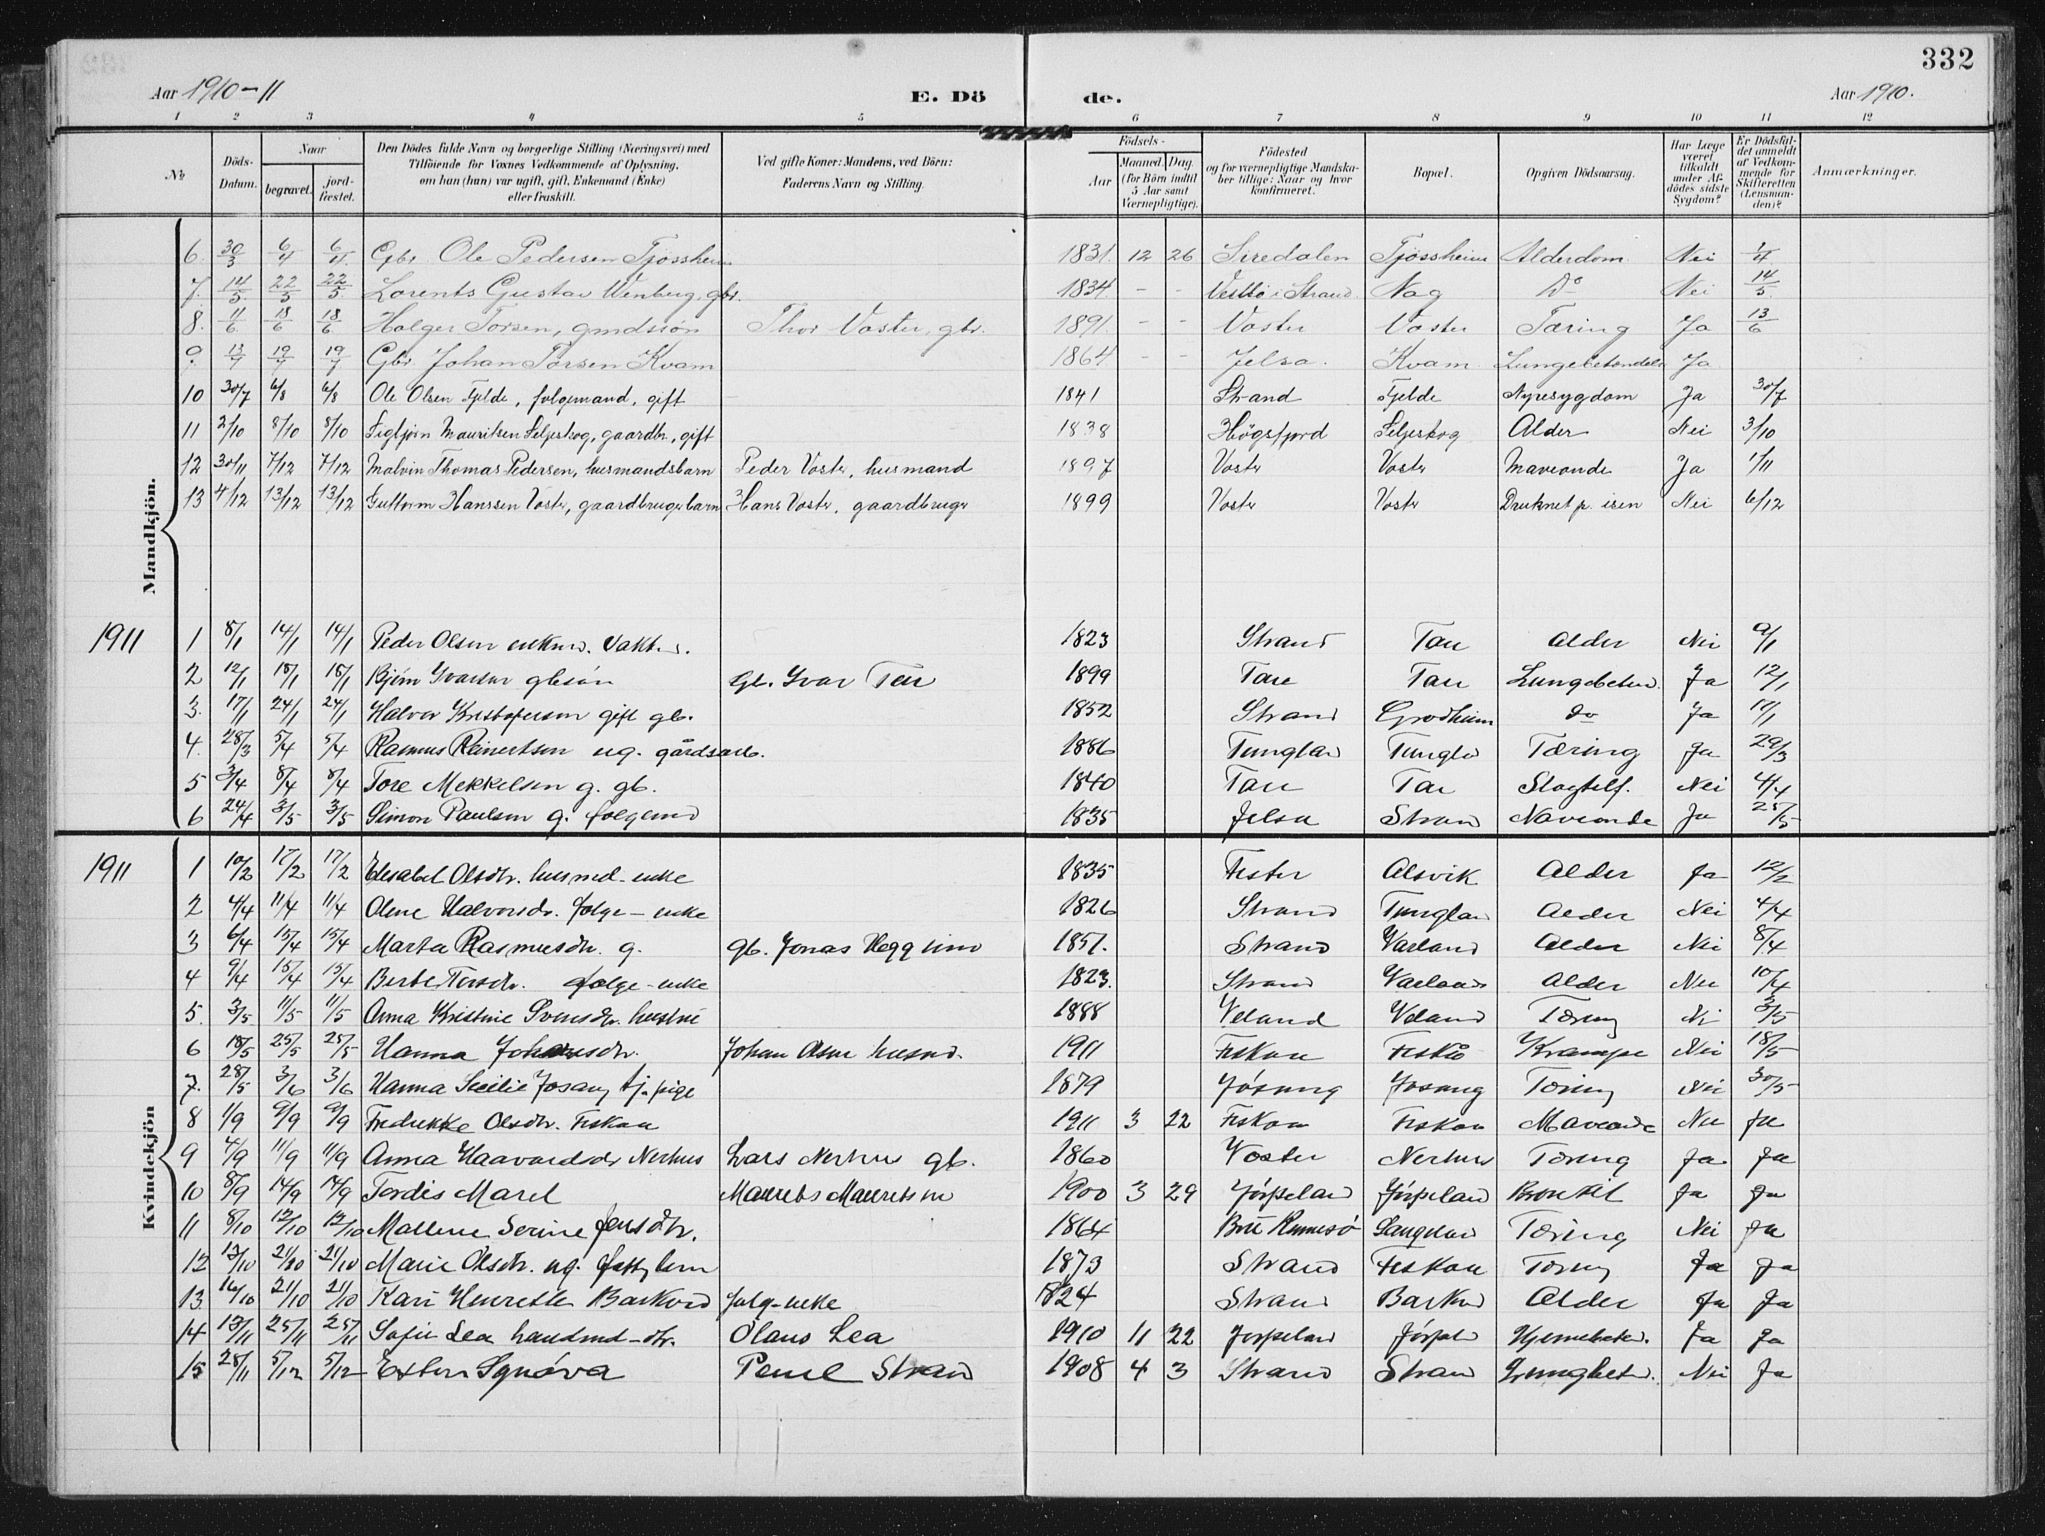 332
Aar 1910-11 E. Dö de. Aar 1910.
1 2 3 4 5 6 7 8 9 10 11 12
No Döds-Datum. Naar begravet. jord-fæstet. Den Dödes fulde Navn og borgerlige Stilling (Næringsvei) med Tilföiende for Voxnes Vedkommende af Oplysning, om han (hun) var ugift, gift, Enkemand (Enke) eller fraskilt. Ved gifte Koner: Mandens, ved Börn: Faderens Navn og Stilling. Födsels- Aar Maaned. Dag. (for Börn indtil 5 Aar samt Værnepligtige). Födested og for værnepligtige Mandskaber tillige: Naar og hvor konfirmeret. Bopæl. Opgiven Dödsaarsag. Har Læge været tilkaldt under Afdödes sidste Sygdom? Er Dödsfaldet anmeldt af Vedkommende for Skifteretten (Lensmanden)? Anmærkninger.
Mandkjön.
6. 30/3 6/4 6/4 Gbr. Ole Pedersen Tjössheim 1831. 12 26 Siredalen Tjössheim Alderdom Nei 1/4
7. 14/5 22/5 22/5 Lorents Gustav Wenberg, gbr. 1834. - - i Strand. Nag Do Nei 14/5
8. 11/6 18/6 18/6 Holger Torsen, grmdssøn Thor Voster, gbr. 1891. - - Voster Voster Tæring Ja 13/6
9. 13/7 19/7 19/7 Gbr. Johan Torsen Kvam 1864 - - Jelsa. Kvam Ja
10 30/7 6/8 6/8 Ole Olsen Fjelde, folgemand, gift 1841 Strand Fjelde Nyresygdom Ja 30/7
11 2/10 8/10 8/10 Sigbjørn Mauritsen Seljeskog, gaardbr., gift 1838 Högsfjord Seljeskog Alder Nei 3/10
12 30/11 7/12 7/12 Malvin Thomas Pedersen, husmandsbarn Peder Voster, husmand 1897 Voster Voster Maveonde Ja 1/11
13 4/12 13/12 13/12 Guttorm Hanssen Voster, gaardbrugerbarn Hans Voster, gaardbruger 1899 Voster Voster Druknet p. isen Nei 6/12
1911 1 8/1 14/1 14/1 Peder Olsen enkmd. 1823 Strand Tau Alder Nei 9/1
2 12/1 18/1 18/1 Bjørn Ivarsen gbsøn gb. Ivar Tau 1899 Tau Tau Lungebeten. Ja 12/1
3. 17/1 24/1 24/1 Halvor Kristofersen gift gb. 1852 Strand Grødheim do Ja
4. 28/3 5/4 5/4 Rasmus Reinertsen ug. gårdsarb. 1886 Tungland Tungld Tæring Ja 29/3
5 3/4 8/4 8/4 Tore Mekkelsen g. gb. 1840 Tau Tau Slagtilf. Nei 4/4
6 24/4 3/5 3/5 Simon Paulsen g. folgemd 1835 Jelsa Strand Maveonde Ja 25/5
Kvindekjön
1911 1 10/2 17/2 17/2 Elisabet Olsdtr. husmd-enke 1835 Fister Alsvik Alder Ja 12/2
2 4/4 11/4 11/4 Olene Halvorsdr. folge-enke 1826 Strand Tungland Alder Nei 4/4
3 6/4 15/4 15/4 Marta Rasmusdtr. g. gb. Jonas Heggland 1851. Strand Varland Alder Nei 8/4
4 9/4 15/4 15/4 Berte folge-enke 1823. Strand Varland Alder Nei 10/4
5. 3/5 11/5 11/5 Anna Kristine Svensdtr. hustru 1888 Veland Veland Tæring Nei 3/5
6 18/5 25/5 25/5 Hanna Johansdtr. Johan Olsen husmd. 1911 Fiskau Fiskå Krampe Nei 18/5
7. 28/5 3/6 3/6 Hanna Secilie Jøsang tj. pige 1879 Jøsang Jøsang Tæring Nei 30/5
8 1/9 9/9 9/9 Fredrikke Olsdtr. Fiskau 1911 3 22 Fiskau Fiskau Maveonde Nei Ja
9 4/9 11/9 11/9 Anna Haavardsdr Nerhus Lars Nerhus gb. 1860 Voster Nerhus Tæring Ja Ja
10 8/9 14/9 14/9 Tordis Marel Maurits Mauritsen 1900 3 29 Jørpeland Jørpeland Bronkit Ja Ja
11 8/10 12/10 12/10 Mallene Serine Jensdtr. 1864 Bru Rennesö Langeland Tæring Nei Ja
12 13/10 21/10 21/10 Marie Olsdtr. ug. fattiglem 1873 Strand Fiskau Tæring Ja Ja
13 16/10 21/10 21/10 Kari Henrette Barkved folg-enke 1824 Strand Barkvd Alder Ja Ja
14 13/11 25/11 25/11 Sofie Lea handmd-dtr. Olaus Lea 1910 11 22 Jørpeland Jørpeld Hjernebeten. Ja Ja
15 28/11 5/12 5/12 Ester Synöva Strand 1908 4 3 Strand Strand Lungbeten. Nei Ja